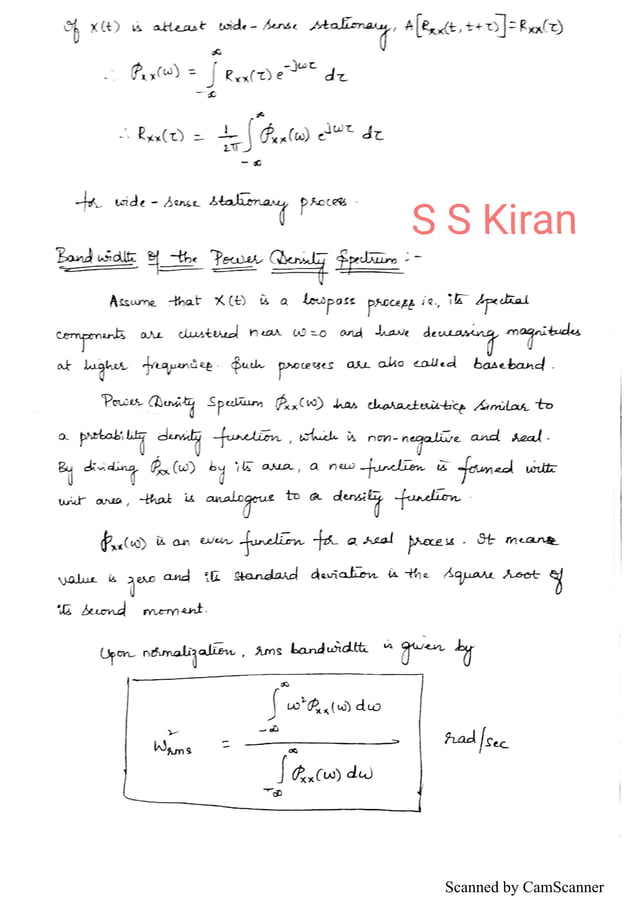 If X(t) is atleast wide-sense stationary, A[R_XX(t, t+τ)] = R_XX(τ)
∴ P_XX(ω) = ∫_{-∞}^{∞} R_XX(τ) e^{-jωτ} dτ
∴ R_XX(τ) = 1/2π ∫_{-∞}^{∞} P_XX(ω) e^{jωτ} dτ
for wide-sense stationary process.
S S Kiran
Bandwidth of the Power Density Spectrum :-
Assume that X(t) is a lowpass process i.e., its spectral
components are clustered near ω=0 and have decreasing magnitudes
at higher frequencies. Such processes are also called baseband.
Power Density Spectrum P_XX(ω) has characteristics similar to
a probability density function, which is non-negative and real.
By dividing P_XX(ω) by its area, a new function is formed with
unit area, that is analogous to a density function.
P_XX(ω) is an even function for a real process. It means
value is zero and its standard deviation is the square root of
its second moment.
Upon normalization, rms bandwidth is given by
W²_rms = ∫_{-∞}^{∞} ω² P_XX(ω) dω / ∫_{-∞}^{∞} P_XX(ω) dω rad/sec
Scanned by CamScanner